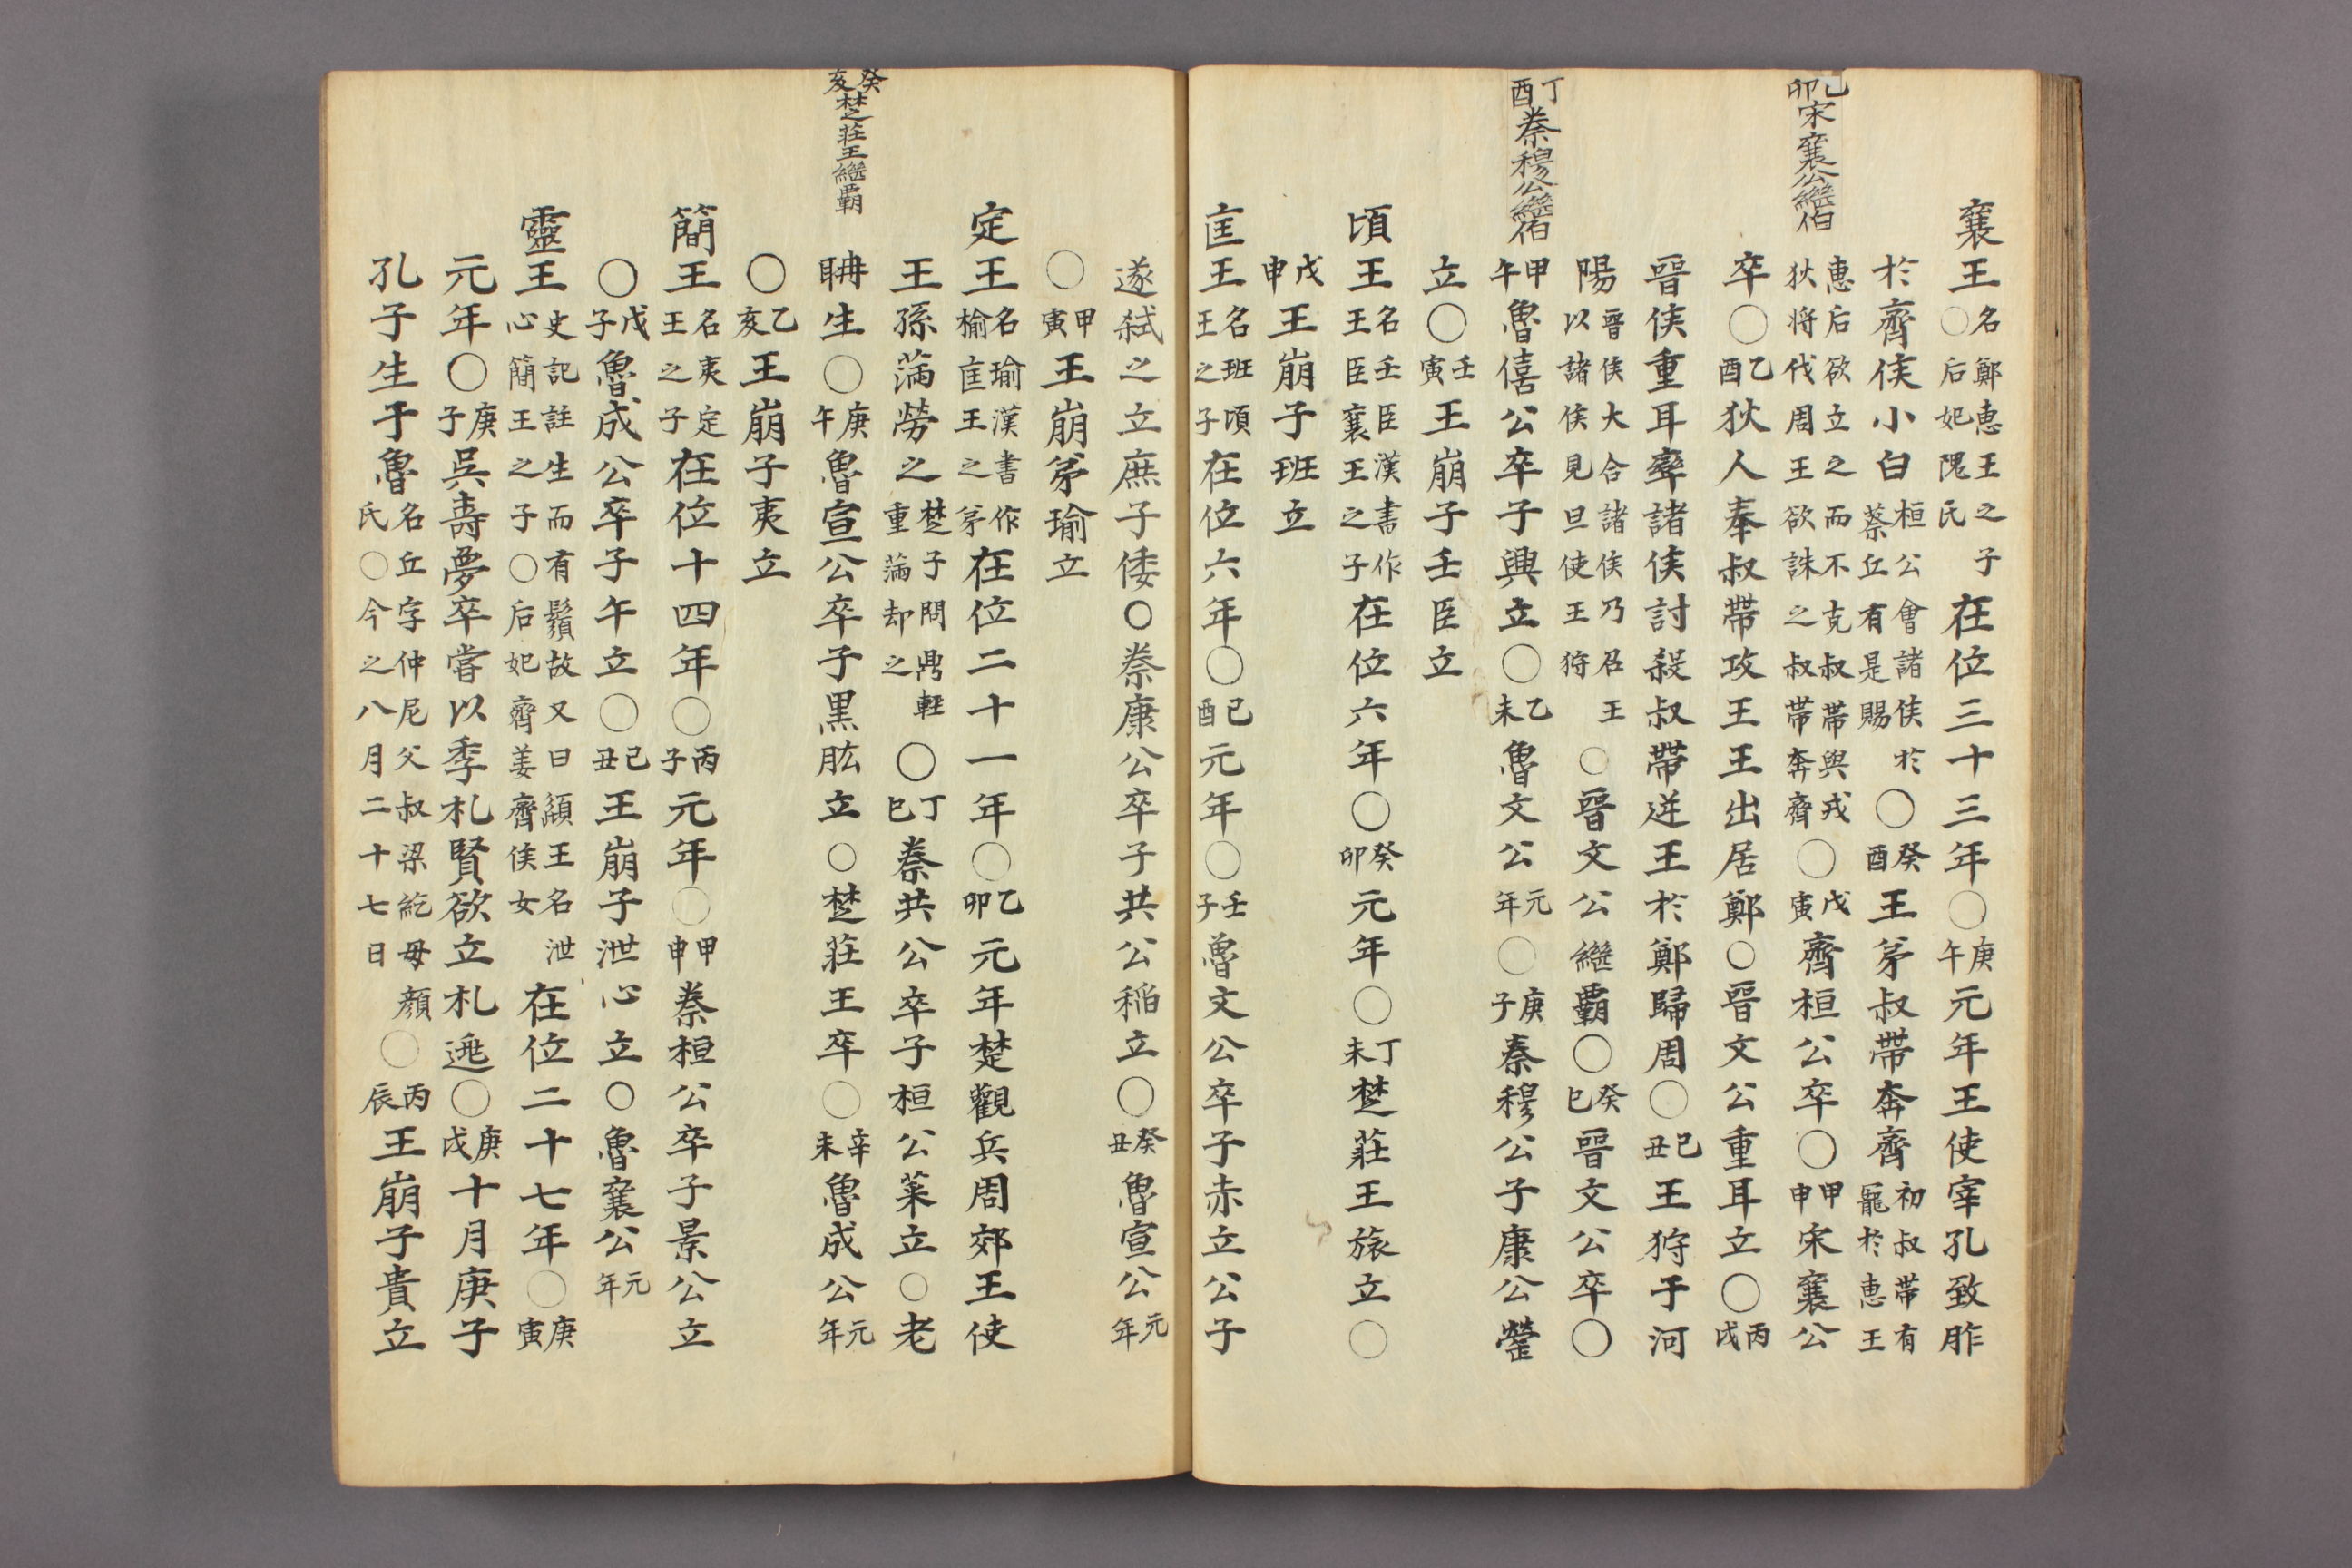 襄王名鄭惠王之子○后妃隗氏在位三十三年○庚午元年王使宰孔致胙
於齊侯小白桓公會諸侯於蔡丘有是賜○癸酉王弟叔帶奔齊初叔帶有寵於惠王
惠后欲立之而不克叔帶與戎狄将伐周王欲誅之叔帶奔齊○戊寅齊桓公卒○甲申宋襄公
卒○乙酉狄人奉叔帶攻王王出居鄭○晉文公重耳立○丙戌
晉侯重耳率諸侯討殺叔帶逆王於鄭歸周○己丑王狩于河
陽晉侯大合諸侯乃召王以諸侯見且使王狩○晉文公繼覇○癸巳晉文公卒○
甲午魯僖公卒子興立○乙未魯文公元年○庚子秦穆公子康公罃
立○壬寅王崩子壬臣立
頃王名壬臣漢書作王臣襄王之子在位六年○癸卯元年○丁未楚莊王旅立○
戊申王崩子班立
匡王名班頃王之子在位六年○己酉元年○壬子魯文公卒子赤立公子
己卯宋襄公繼伯
丁酉秦穆公繼伯
遂弑之立庶子倭○秦康公卒子共公稲立○癸丑魯宣公元年
○甲寅王崩弟瑜立
定王名瑜漢書作楡匡王之弟在位二十一年○乙卯元年楚觀兵周郊王使
王孫蒲勞之楚子問鼎輕重蒲却之○丁巳秦共公卒子桓公菜立○老
聃生○庚午魯宣公卒子黒肱立○楚莊王卒○辛未魯成公元年
○乙亥王崩子夷立
簡王名夷定王之子在位十四年○丙子元年○甲申秦桓公卒子景公立
○戊子魯成公卒子午立○己丑王崩子泄心立○魯襄公元年
靈王史記註生而有鬚故又曰頾王名泄心簡王之子○后妃齊姜齊侯女在位二十七年○庚寅
元年○庚子呉壽夢卒嘗以季札賢欲立札逃○庚戌十月庚子
孔子生于魯名丘字仲尼父叔梁紇母顔氏○今之八月二十七日○丙辰王崩子貴立
癸亥楚莊王繼覇